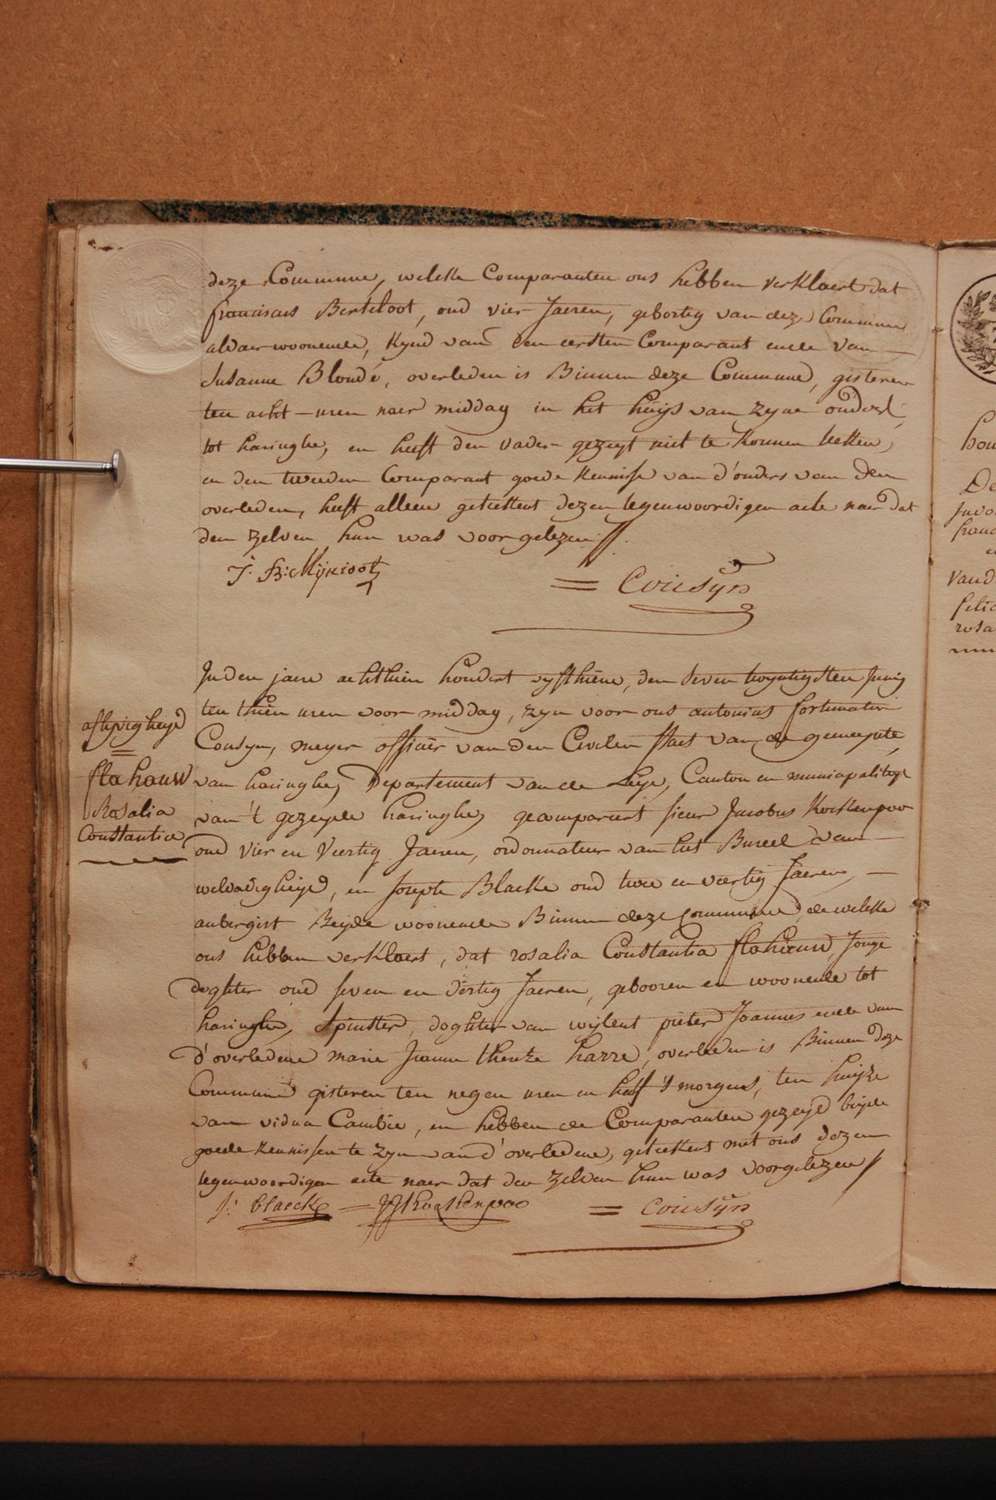 deze Commune, welke Comparanten ons hebben verklaert dat
francisus Berteloot, oud vier Jaeren, gebortig van deze Commune
aldaer woonende, kynd van den eersten Comparant ende van
Susanne Blondé, overleden is Binnen deze Commune, gisteren
ten acht uren naer middag in het huijs van zyne ouders,
tot haringhe, en heeft den vader gezeyt niet te konnen teeken,
en den tweeden Comparant goede kennisse van d'ouders van den
overleden, heeft alleen geteekent dezen tegenwoordigen acte naer dat
den zelven hun was voorgelezen //.
= Cousyn
afleyvigheyd
=
flahauw
Rosalia
Constantia
In den jaere achthien hondert vyfthiene, den seven twyntigsten Junij
ten thien uren voor middag, zyn voor ons antonius fortunatus
Cousyn, meyer officier van den Civilen staet van de gemeynte
van haringhe, Departement van de Leye, Canton en municipaliteyt
van 't gezeyde haringhe, gecompareert sieur Jacobus Kockenpoo
oud vier en veertig Jaeren, ordonnateur van het Bureel van
weldadigheyd, en Joseph Blaeke oud twee en veertig Jaeren,
aubergist Beyde woonende Binnen deze Commune, de welke
ons hebben verklaert, dat rosalia Constantia flahauw, Jonge
doghter oud seven en dertig Jaeren, gebooren en woonende tot
haringhe, spinster, doghter van wylent pieter Joannes ende van
d'overledene marie Joanne harre, overleden is Binnen deze
Commune gisteren ten negen uren en half 's morgens, ten huijze
van vidua Cambie, en hebben de Comparanten gezeyd beyde
goede kennissen te zyn van d'overledene, geteekent met ons dezen
tegenwoordigen acte naer dat den zelven hun was voorgelezen //
j: blaeck = Kockenpoo = Cousyn